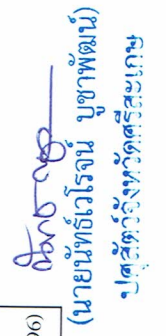 (นายนัทธ์เวโรจน์ บูชาพัฒน์)
ปศุสัตว์จังหวัดศรีสะเกษ